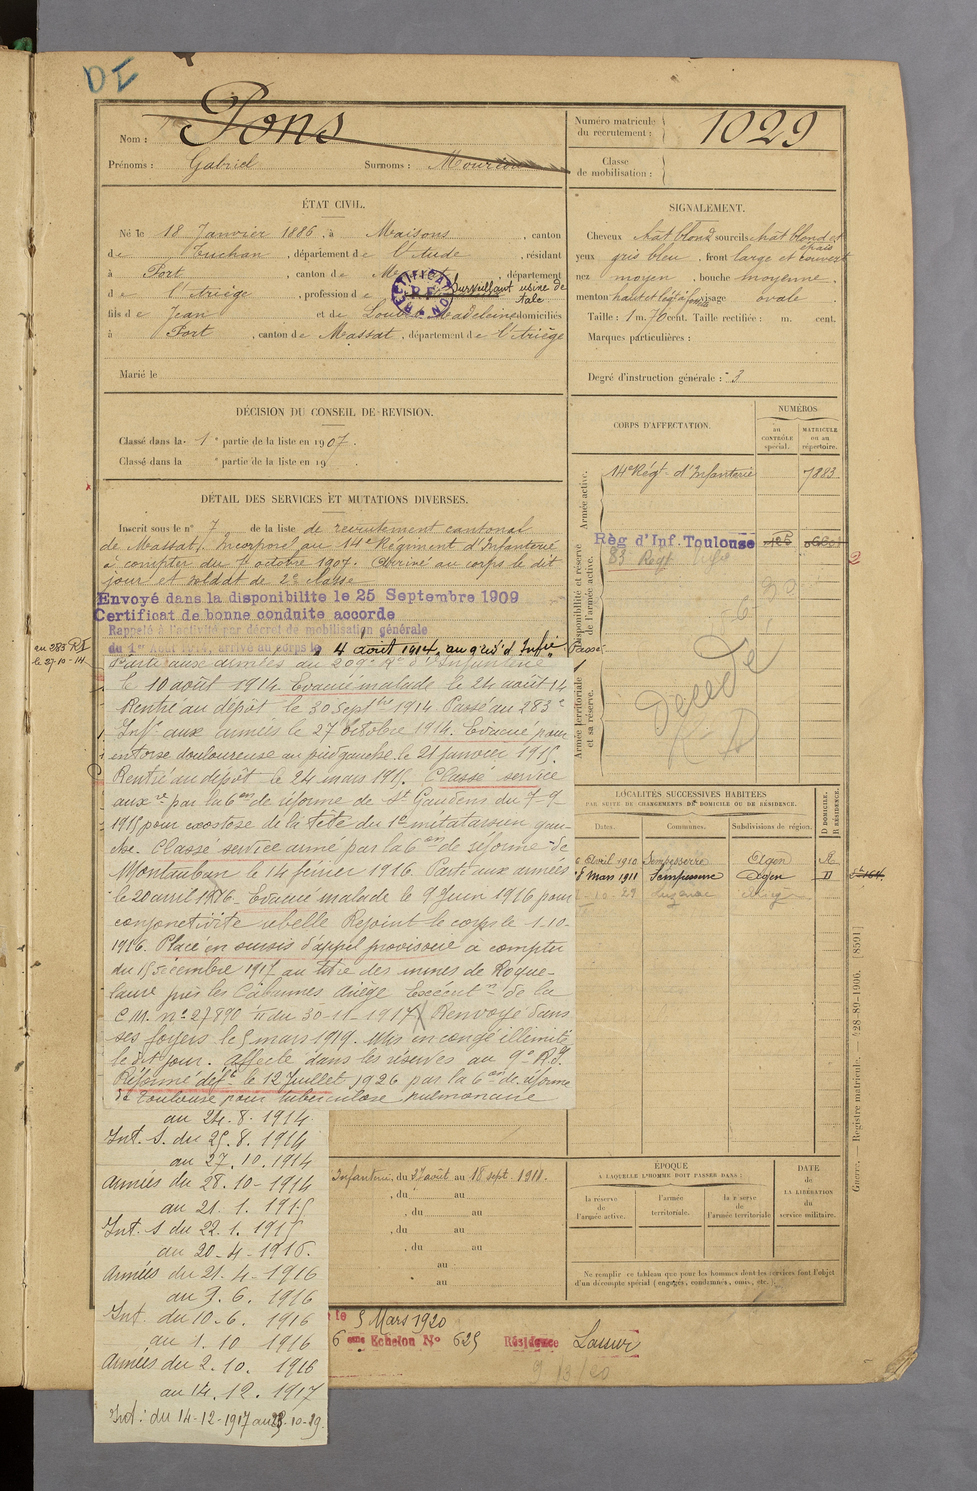 DI
Nom : Pons
Prénoms : Gabriel Surnoms :
Numéro matricule du recrutement : 1029
Classe de mobilisation :
ÉTAT CIVIL.
Né le 18 Janvier 1886, à Maisons, canton
de Tuchan, département de l'Aude, résidant
à Port, canton de, département
d e l'Ariège, profession d e Surveillant usine de talc
RECTIFICATION
R.F.
fils d e Jean et de Madeleine domiciliés
à Port, canton de Massat, département de l'Ariège
Marié le
SIGNALEMENT.
Cheveux chât blond sourcils chât blond et épais
yeux gris bleu, front large et couvert
nez moyen, bouche moyenne,
menton visage ovale
Taille : 1 m. 70 cent. Taille rectifiée : m. cent.
Marques particulières :
Degré d'instruction générale : 3
DÉCISION DU CONSEIL DE REVISION.
Classé dans la 1e partie de la liste en 1907.
Classé dans la e partie de la liste en 19 .
CORPS D'AFFECTATION.
NUMÉROS
au CONTRÔLE spécial.
MATRICULE ou au répertoire.
Armée active.
14e Régt d'Infanterie 7883
Disponibilité et réserve de l'armée active.
Règ d'Inf. Toulouse
83 Regt
Armée territoriale et sa réserve.
DÉTAIL DES SERVICES ET MUTATIONS DIVERSES.
Inscrit sous le n° 7 de la liste de recrutement cantonal
de Massat. Incorporé au 14e Régiment d'Infanterie
à compter du 7 octobre 1907. Arrivé au corps le dit
jour et soldat de 2e classe
Envoyé dans la disponibilite le 25 Septembre 1909
Certificat de bonne conduite accorde
Rappelé à l'activité par décret de mobilisation générale
du 1er Août 1914, arrivé au corps le 4 août 1914, Passé
au 283 RI
le 27-10-14
Parti aux armées du 209e Rt d'Infanterie
le 10 août 1914. Evacué malade le 24 août 14
Rentré au dépôt le 30 Septbre 1914. Passé au 283e
Infie aux armées le 27 octobre 1914. Evacué pour
entorse douloureuse au pied gauche le 21 janvier 1915.
Rentré au dépôt le 24 mars 1915. Classé service
auxre par la 6e on de réforme de St Gaudens du 7-9-
1915 pour exostose de la tête du 1er metatarsien gau-
che. Classé service armé par la 6e on de réforme de
Montauban le 14 février 1916. Parti aux armées
le 20 avril 1916. Evacué malade le 9 Juin 1916 pour
conjonctivite rebelle Rejoint le corps le 1-10-
1916. Placé en sursis d'appel provisoire a compter
du 15 décembre 1917 au titre des mines de Roque-
laure près les Cabannes Ariège Exécentn de la
C.M. n° 27890 II du 30-11-1917 Renvoyé dans
ses foyers le 5 mars 1919. Mis en congé illimité
le dit jour. Affecté dans les réserves au 9e Rgt
Réformé défif le 12 Juillet 1926 par la 6e on de réforme
de Toulouse pour tuberculose pulmonaire
au 24.8.1914
Int. S. du 25.8.1914
au 27.10.1914
Armées du 28.10-1914
au 21.1.1915
Int. S du 22.1.1915
au 20-4-1916.
Armées du 21.4-1916
au 9.6.1916
Int. du 10-6.1916
au 1.10 1916
Armées du 2.10. 1916
au 14.12.1917
Int : du 14-12-1917 au 23.10-19
LOCALITÉS SUCCESSIVES HABITÉES
PAR SUITE DE CHANGEMENTS DE DOMICILE OU DE RÉSIDENCE.
Dates. Communes. Subdivisions de région. D DOMICILE. R RÉSIDENCE.
Avril 1910 Sempesserre Agen R
Mars 1911 Sempesserre Agen D
Infanterie, du 27 août au 18 sept. 1911.
, du au
, du au
, du au
, du au
au
au
ÉPOQUE
À LAQUELLE L'HOMME DOIT PASSER DANS :
la réserve de l'armée active.
l'armée territoriale.
la réserve de l'armée territoriale
DATE de LA LIBÉRATION du service militaire.
Ne remplir ce tableau que pour les hommes dont les services font l'objet
d'un décompte spécial (engagés, condamnés, omis, etc.).
le 5 Mars 1920
6 ème Echelon N° 625 Résidence Lassur
Guerre. — Registre matricule. — 428-89-1906. [8591]